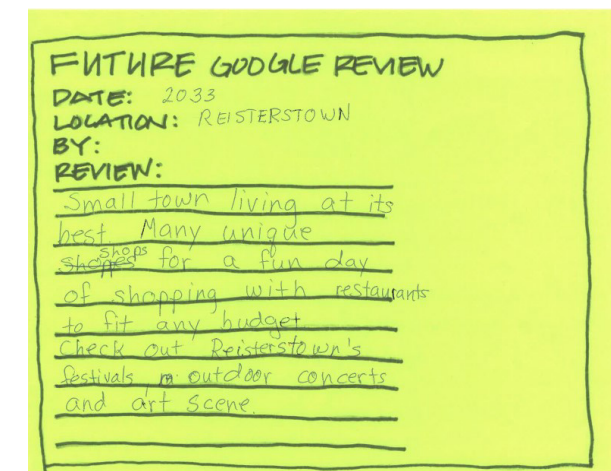 FUTURE GOOGLE REVIEW
DATE: 2033
LOCATION: REISTERSTOWN
BY:
REVIEW:
Small town living at its
best. Many unique
shops for a fun day
of shopping with restaurants
to fit any budget.
Check out Reisterstown's
festivals, outdoor concerts
and art scene.